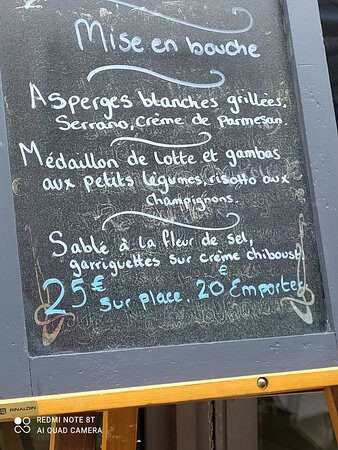 Mise en bouche
Asperges blanches grillées,
Serrano, crème de Parmesan.
Médaillon de lotte et gambas
aux petits légumes, risotto aux
champignons.
Sablé à la fleur de sel,
garriguettes sur crème chiboust.
25€ sur place. 20€ Emporter
RINALDIN
REDMI NOTE 8T
AI QUAD CAMERA